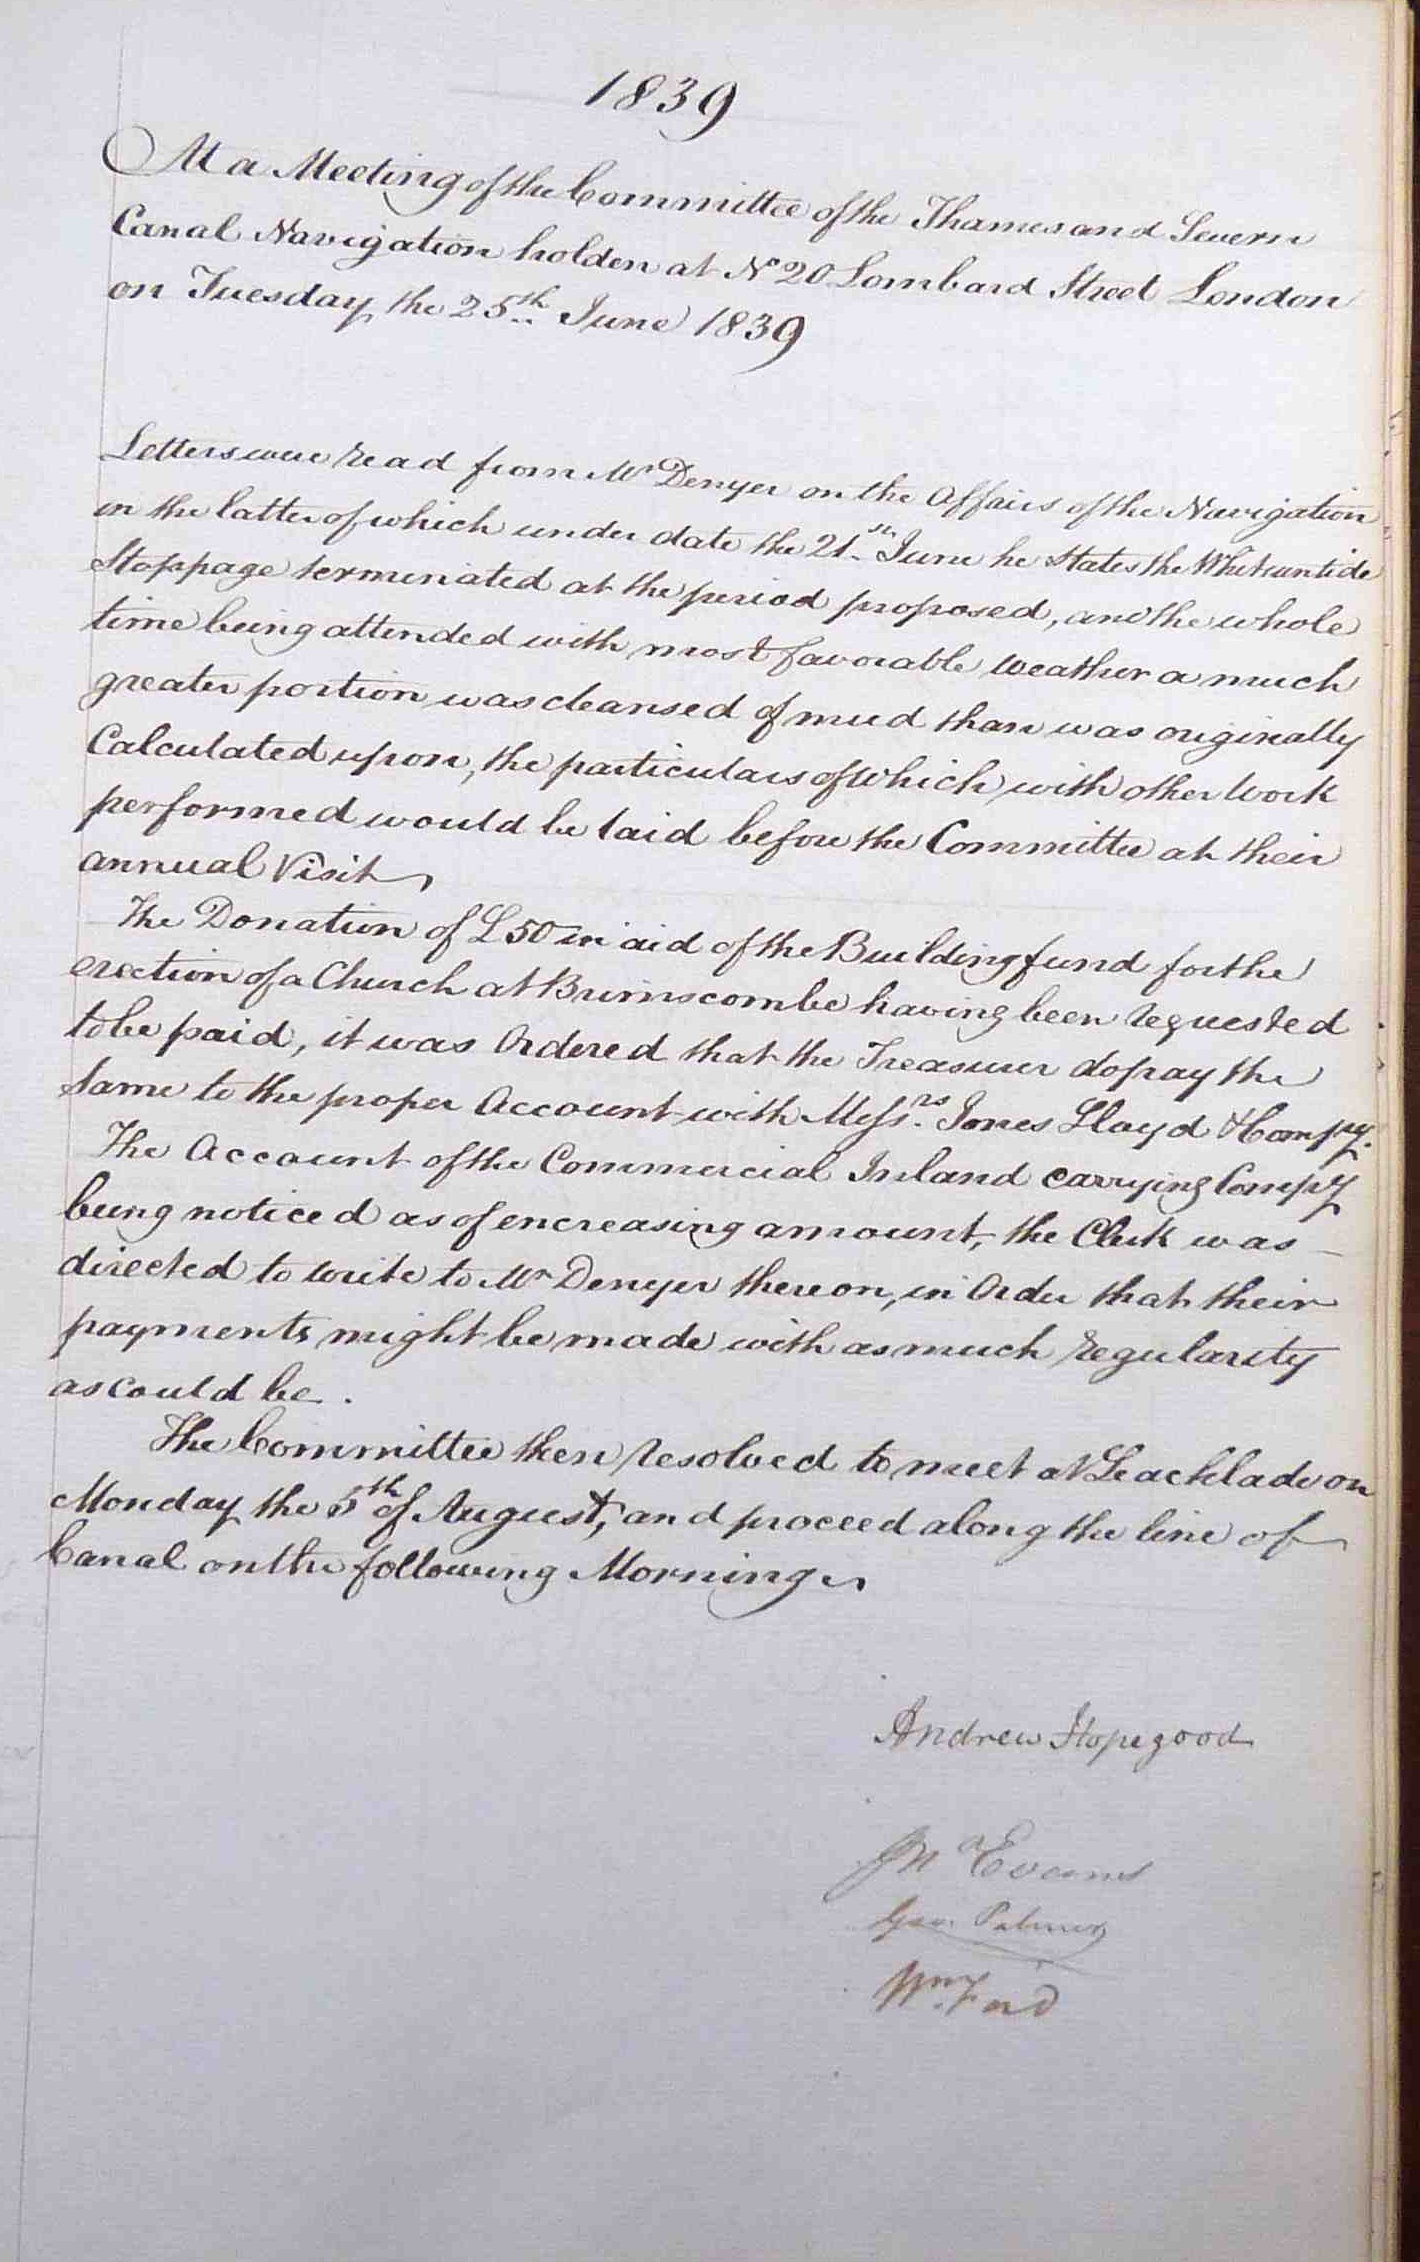 1839
At a Meeting of the Committee of the Thames and Severn
Canal Navigation holden at No 20 Lombard Street London
on Tuesday the 25th June 1839
Letters were read from Mr Denyer on the Affairs of the Navigation
in the latter of which under date the 21st June he States the Whitsuntide
Stoppage terminated at the period proposed, and the whole
time being attended with most favorable weather a much
greater portion was cleansed of mud than was originally
Calculated upon, the particulars of which with other Work
performed would be laid before the Committee at their
annual Visit
The Donation of £50 in aid of the Building fund for the
erection of a Church at Brimscombe having been requested
to be paid, it was Ordered that the Treasurer do pay the
Same to the proper Account with Messrs. Jones Lloyd & Compy.
The Account of the Commercial Inland Carrying Compy
being noticed as of encreasing amount, the Clerk was
directed to write to Mr Denyer thereon, in Order that their
payments might be made with as much regularity
as could be.
The Committee then resolved to meet at Leachlade on
Monday the 5th of August, and proceed along the line of
Canal on the following Morning
Andrew Hopegood
Evans
Geo. Palmer
Wm. Ford